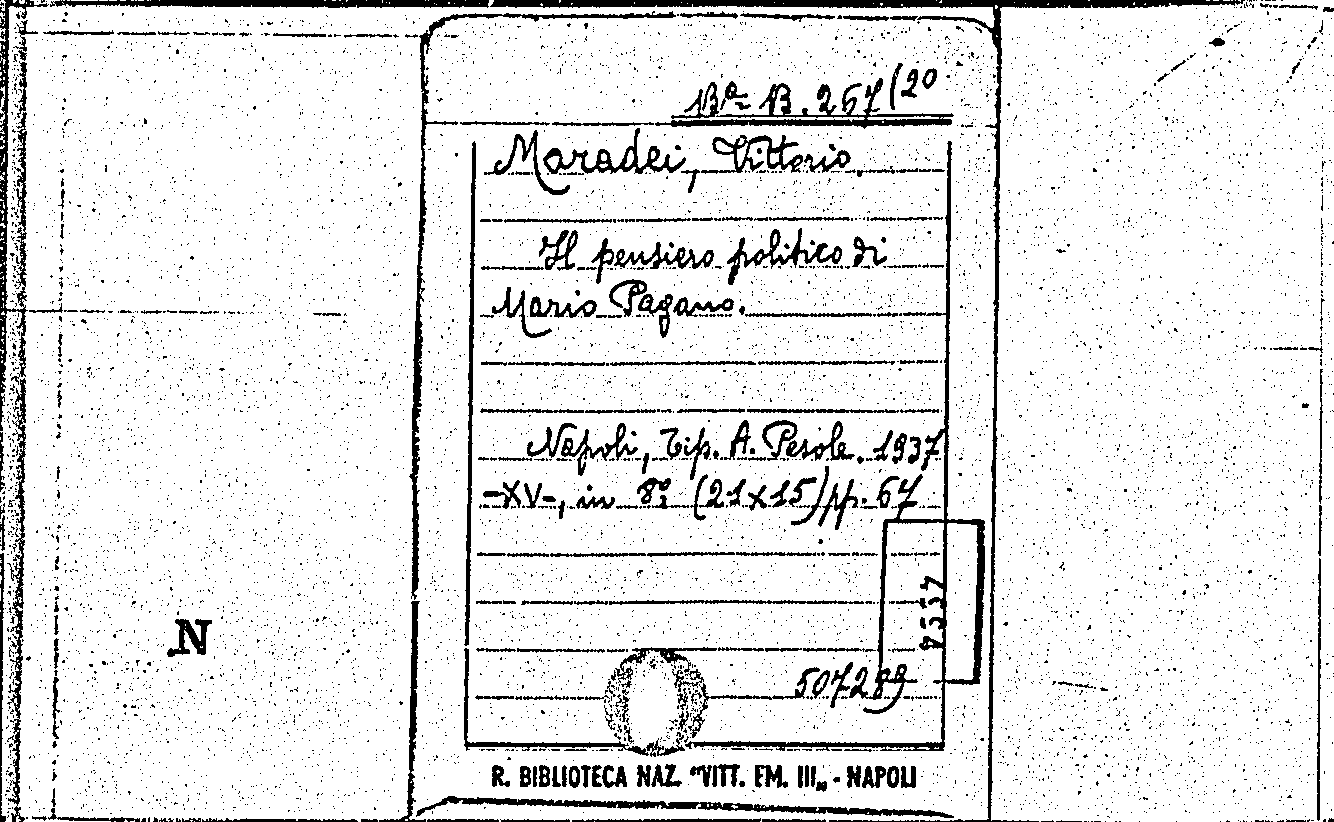 Bª= B. 267(20
Maradei, Vittorio.
Il pensiero politico di
Mario Pagano.
Napoli, Tip. A. Pesole. 1937
-XV-, in 8º. (21x15) pp. 67
507289
N
R. BIBLIOTECA NAZ. "VITT. EM. III„ - NAPOLI